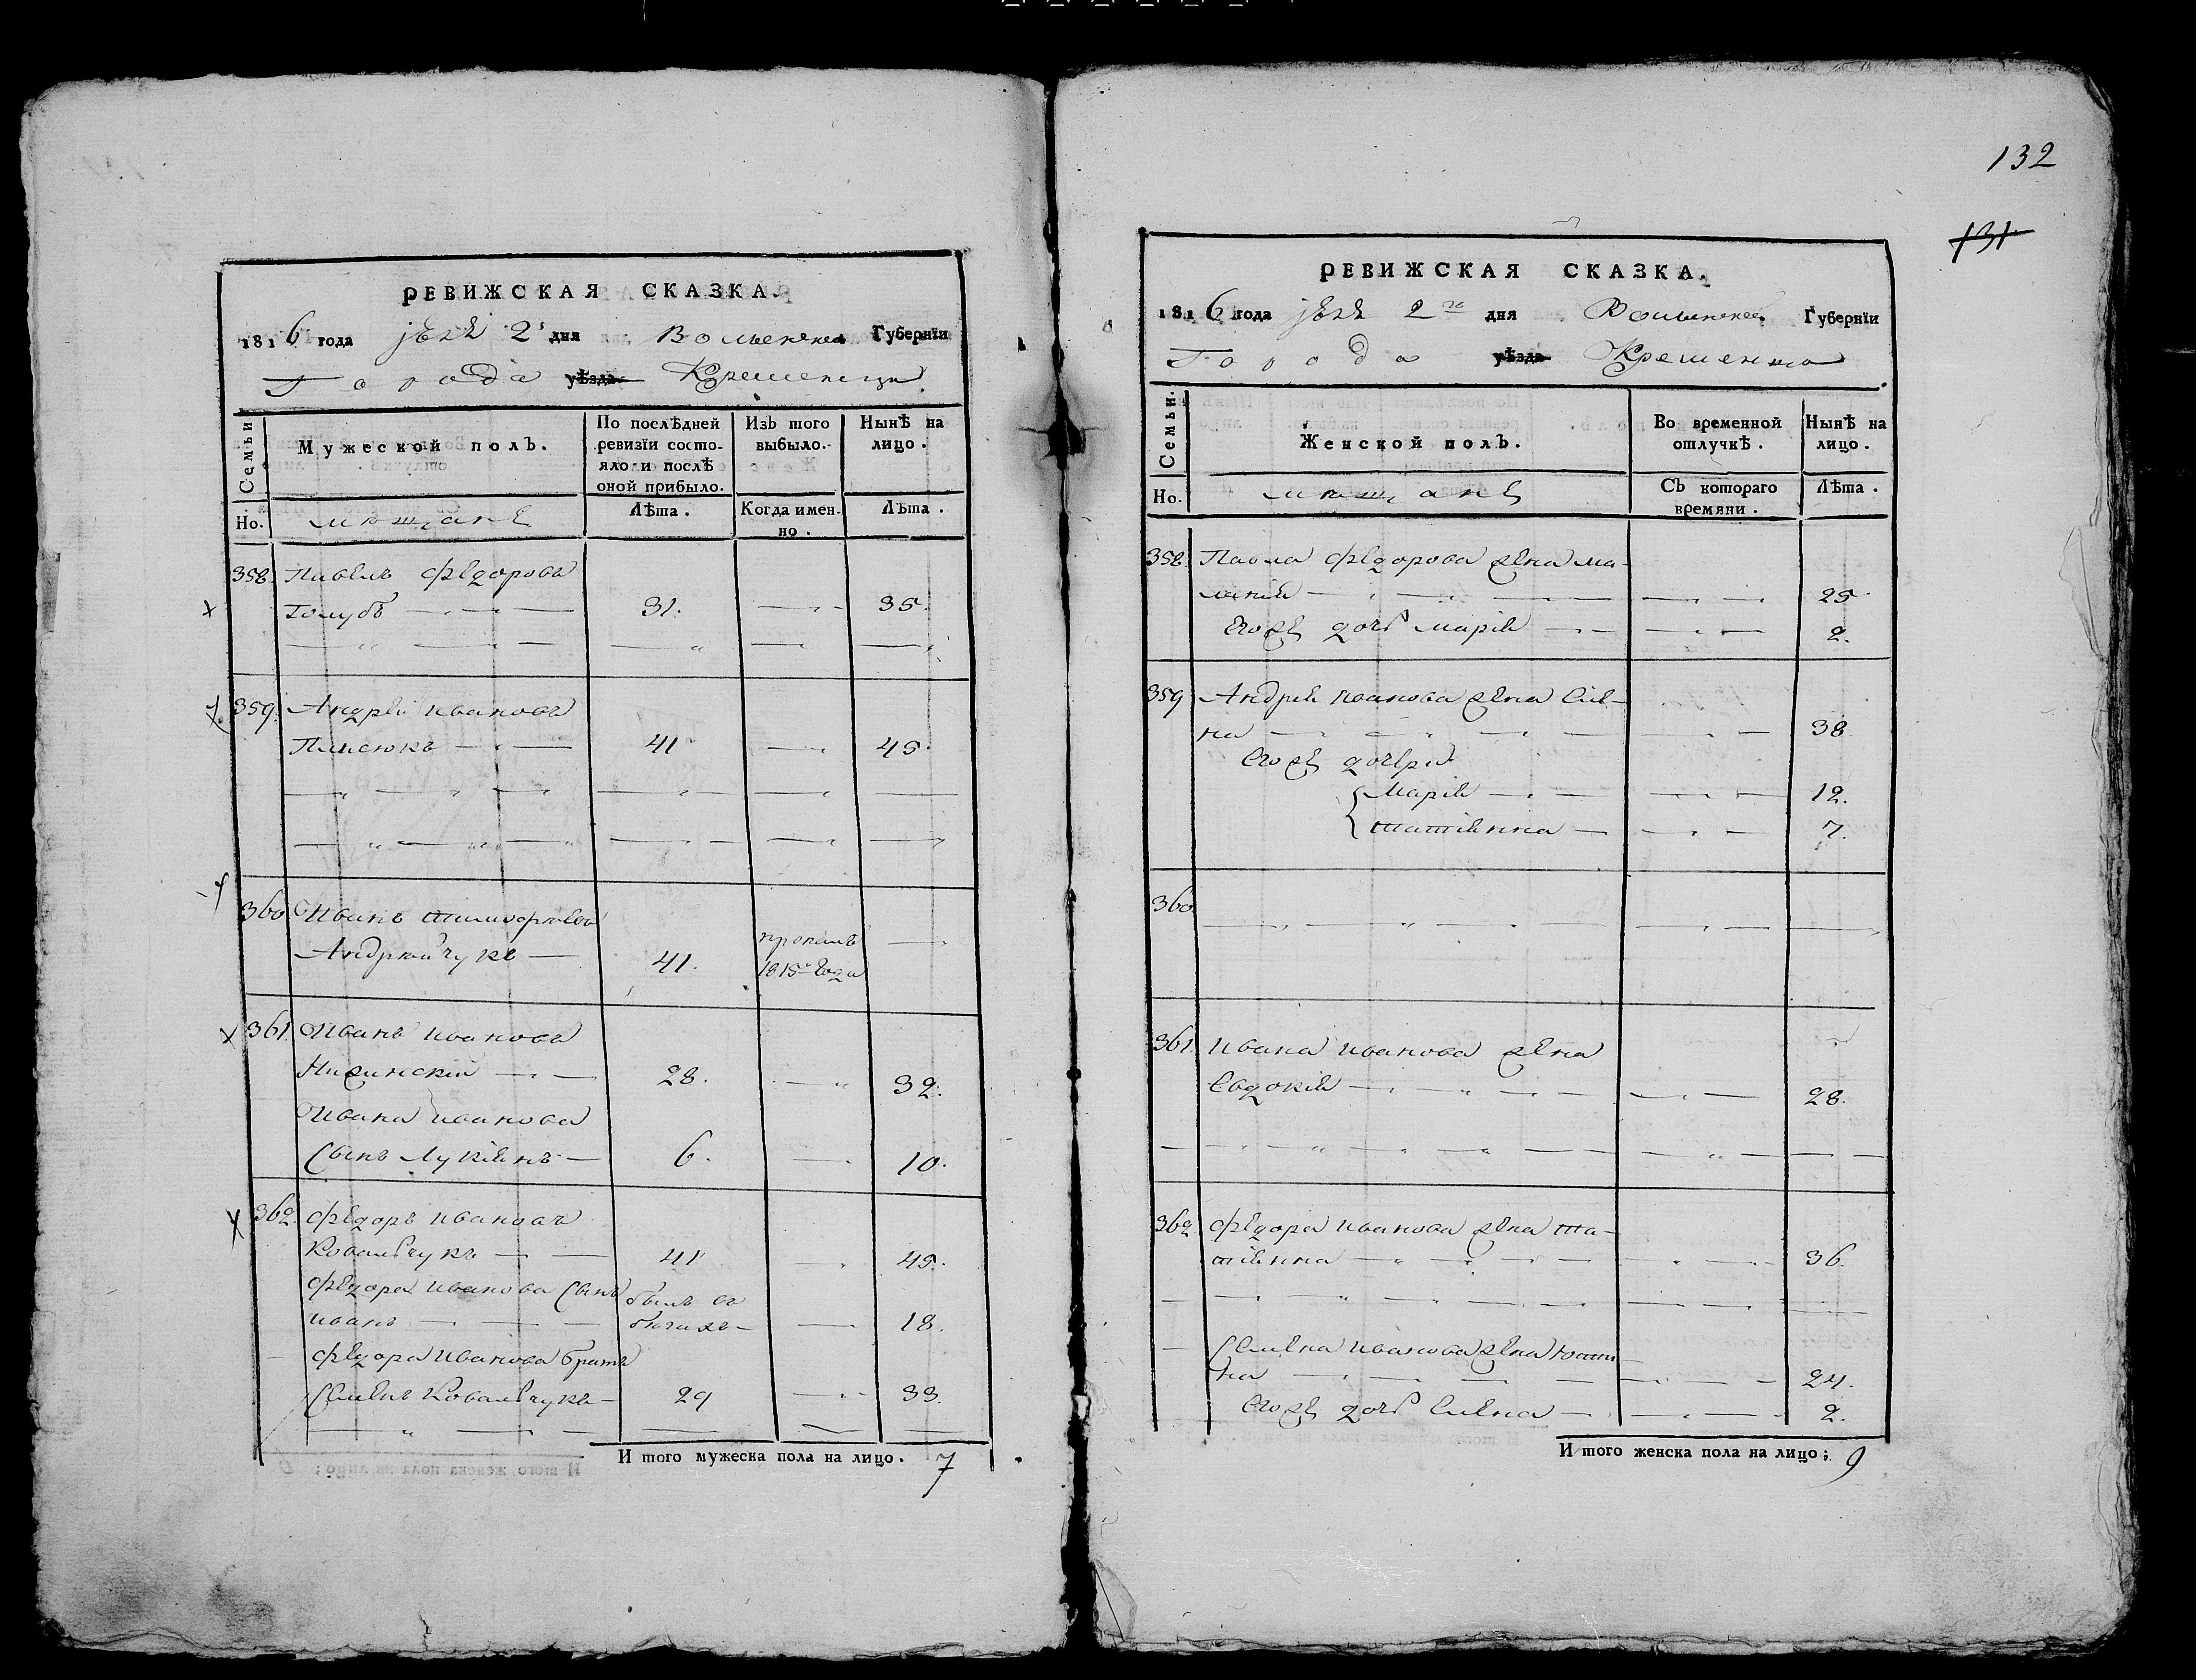 РЕВИЖСКАЯ СКАЗКА.
1816 года 2 дня Волынской Губернїи
Города уѣзда Кременца
Семьи Мужеской полъ. По послѣдней ревизїи состояло и послѣ оной прибыло. Изъ того выбыло. Нынѣ на лицо.
Но. мѣщане Лѣта. Когда именно. Лѣта.
358. Павелъ Федоровъ
Голубъ 31. 35.
359. Андрей Ивановъ
41 45.
360 Иванъ
Андрейчукъ 41. пропалъ 1815 года
361. Иванъ Ивановъ
28. 32.
Ивана Иванова
Сынъ Лукіянъ 6. 10.
362. Федоръ Ивановъ
Ковальчукъ 41 45.
Федора Иванова Сынъ
Иванъ былъ въ бегахъ 18.
Федора Иванова братъ
Семенъ Ковальчукъ 29 33.
И того мужеска пола на лицо. 7
132
131
РЕВИЖСКАЯ СКАЗКА.
1816 года 2го дня Волынской Губернїи
Города уѣзда Кременца
Семьи. Женской полъ. Во временной отлучкѣ. Нынѣ на лицо.
Но. мѣщане Съ котораго времяни. Лѣта.
358. Павла Федорова жена Ма-
25
Егоже дочь Марія 2.
359 Андрея Иванова жена Еле-
на 38
Егоже дочери
Марія 12.
Татіянна 7.
360.
361. Ивана Иванова жена
Евдокія 28.
362. Федора Иванова жена Та-
тіянна 36.
Семена Иванова жена Юсти-
на 24.
Егоже дочь Елена 2.
И того женска пола на лицо; 9